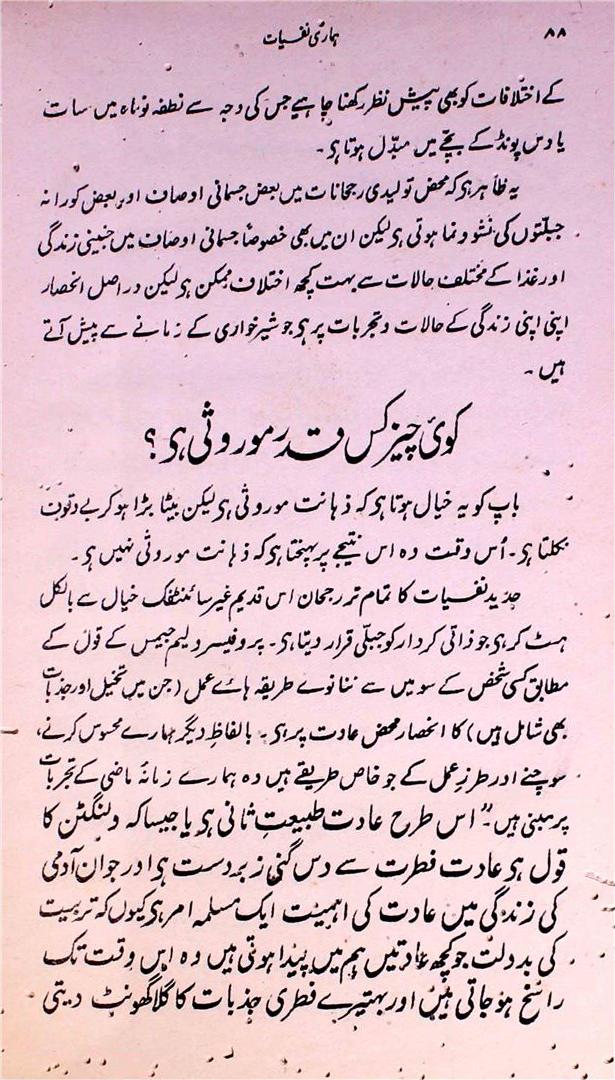 ۸۸
ہماری نفسیات
کے اختلافات کو بھی پیش نظر رکھنا چاہیے جس کی وجہ سے نطفہ نو ماہ میں سات
یا دس پونڈ کے بچے میں مبدّل ہوتا ہی۔
یہ ظاہر ہی کہ محض تولیدی رجحانات میں بعض جسمانی اوصاف اور بعض کورانہ
جبلتوں کی نشو و نما ہوتی ہی لیکن ان میں بھی خصوصاً جسمانی اوصاف میں جنینی زندگی
اور غذا کے مختلف حالات سے بہت کچھ اختلاف ممکن ہی لیکن در اصل انحصار
اپنی اپنی زندگی کے حالات و تجربات پر ہی جو شیر خواری کے زمانے سے پیش آتے
ہیں۔
کوئ چیز کس قدر موروثی ہی؟
باپ کو یہ خیال ہوتا ہی کہ ذہانت موروثی ہی لیکن بیٹا بڑا ہو کر بے وقوف
نکلتا ہی۔ اُس وقت وہ اس نتیجے پر پہنچتا ہی کہ ذہانت موروثی نہیں ہی۔
جدید نفسیات کا تمام تر رجحان اس قدیم غیر سائنٹفک خیال سے بالکل
ہٹ کر ہی جو ذاتی کردار کو جبلّی قرار دیتا ہی۔ پروفیسر ولیم جیمس کے قول کے
مطابق کسی شخص کے سو میں سے ننانوے طریقہ ہائے عمل (جن میں تخیل اور جذبات
بھی شامل ہیں) کا انحصار محض عادت پر ہی۔ بالفاظِ دیگر ہمارے محسوس کرنے،
سوچنے اور طرزِ عمل کے جو خاص طریقے ہیں وہ ہمارے زمانۂ ماضی کے تجربات
پر مبنی ہیں۔" اس طرح عادت طبیعتِ ثانی ہی یا جیسا کہ ولنگٹن کا
قول ہی عادت فطرت سے دس گنی زبردست ہی اور جوان آدمی
کی زندگی میں عادت کی اہمیت ایک مسلمہ امر ہی کیوں کہ تربیت
کی بدولت جو کچھ عادتیں ہم میں پیدا ہوتی ہیں وہ اس وقت تک
راسخ ہو جاتی ہیں اور بہتیرے فطری جذبات کا گلا گھونٹ دیتی